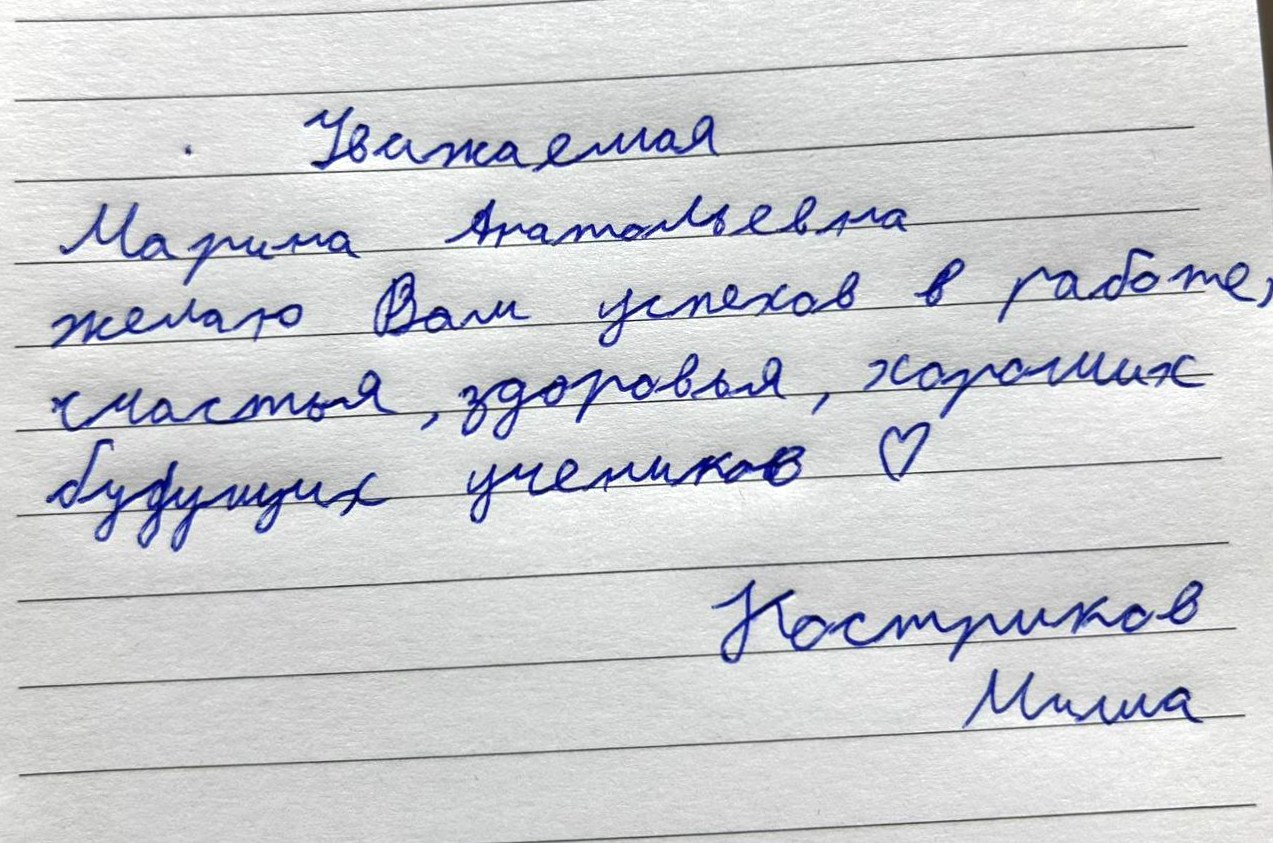 Уважаемая
Марина Анатольевна
желаю Вам успехов в работе,
счастья, здоровья, хороших
будущих учеников ♡
Костриков
Миша